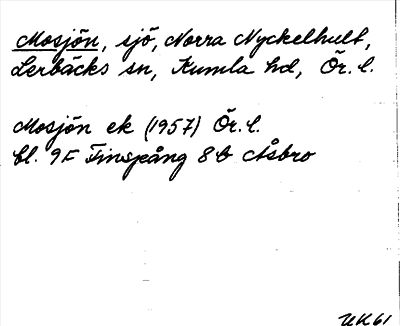 Mosjön, sjö, Norra Nyckelhult,
Lerbäcks sn, Kumla hd, Ör. l.
Mosjön ek (1957) Ör. l.
bl. 9F Finspång 8b Åsbro
UK61